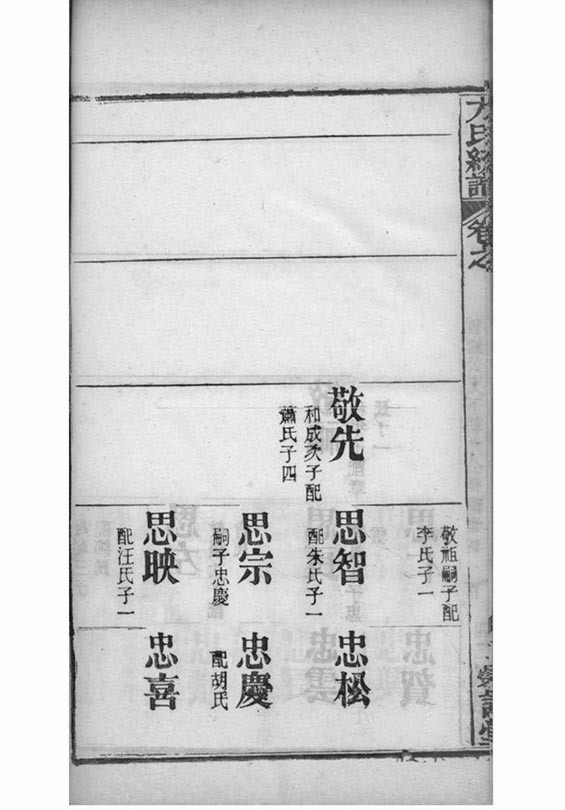 卷之
敬先
和成次子配
蕭氏子四
敬祖嗣子配
李氏子一
思智
配朱氏子一
思宗
嗣子忠慶
思映
配汪氏子一
忠松
忠慶
配胡氏
忠喜